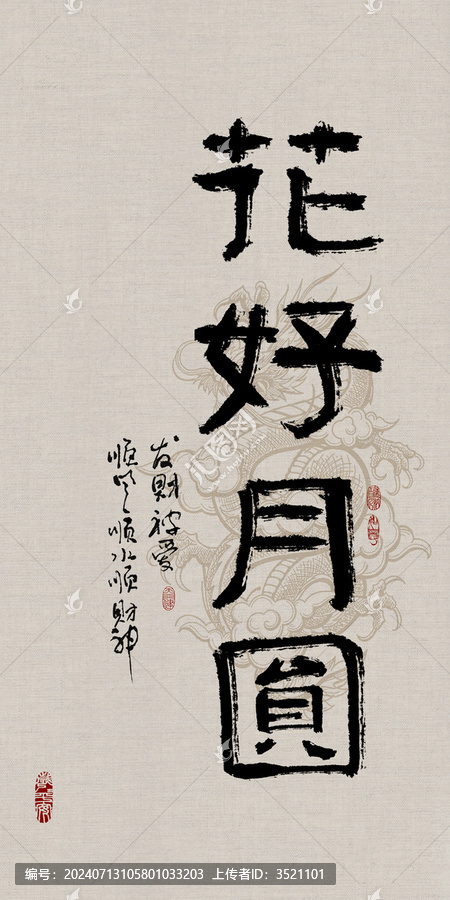 花好月圓
发财被爱
顺风顺水顺财神
编号：20240713105801033203 上传者ID：3521101